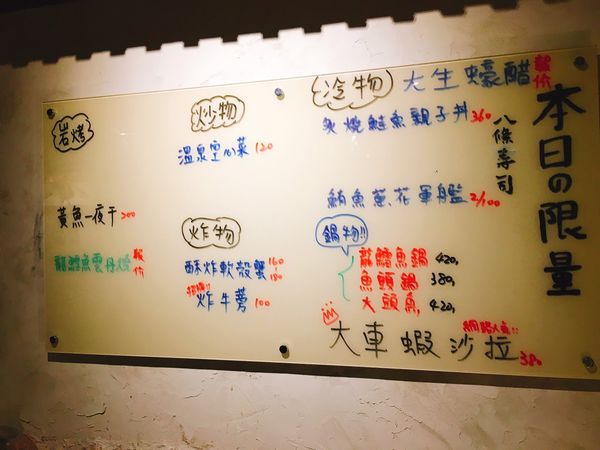 本日の限量
八條壽司
冷物 大生蠔醋 報價
炙燒鮭魚親子丼 360
鮪魚蔥花軍艦 2/100
鍋物!!
龍鱈魚鍋 420,
魚頭鍋 380,
大頭魚, 420,
網路人氣!!
大車蝦沙拉 380
炒物
溫泉空心菜 120
炸物
酥炸軟殼蟹 160~180
招牌!!
炸牛蒡 100
岩烤
黃魚一夜干 200
龍鱈魚雲丹燒 報價